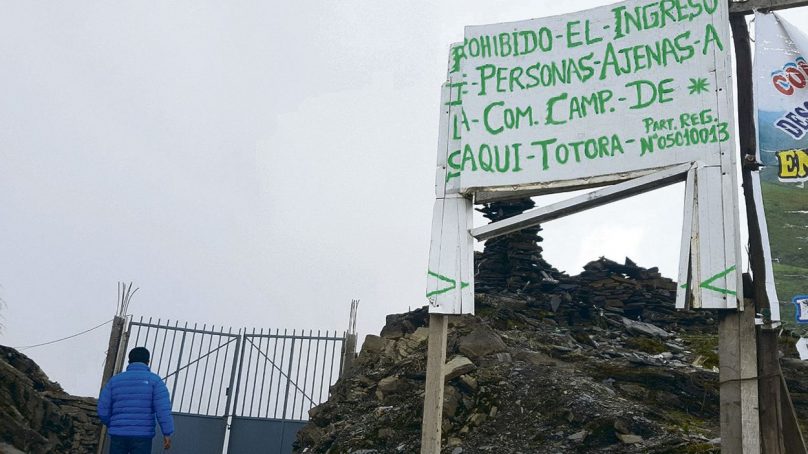 PROHIBIDO-EL-INGRESO
-PERSONAS-AJENAS-A
LA-COM. CAMP.-DE-*
SAQUI-TOTORA-PART. REG.
N°05010013
DES
EN